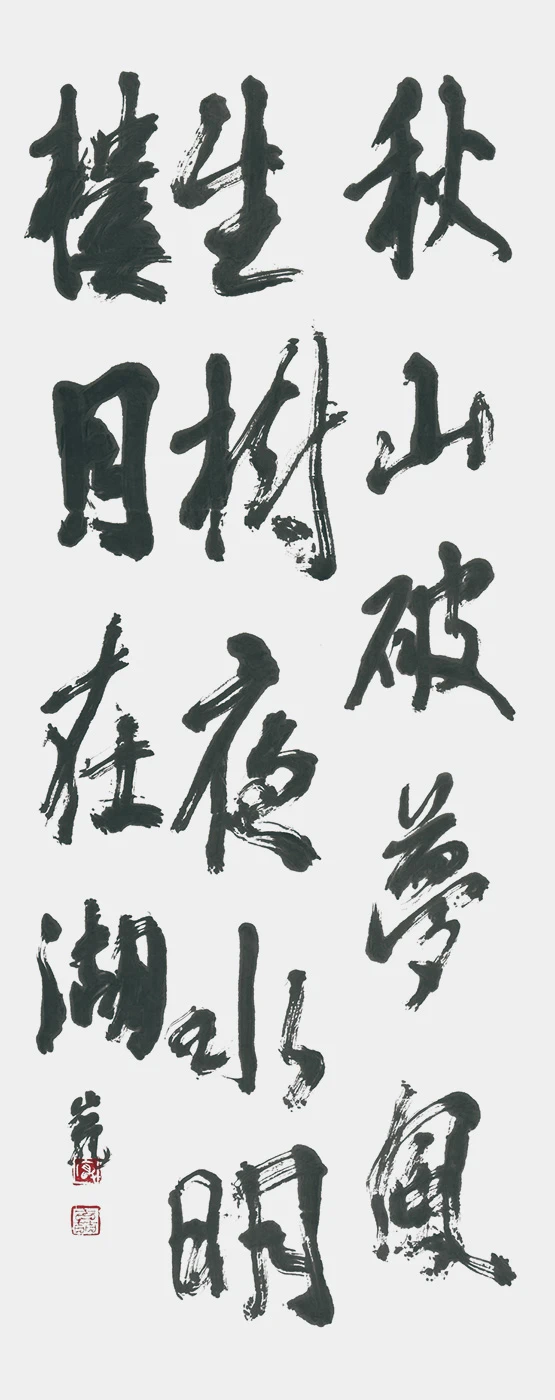 秋山破夢風
生樹夜水明
樓月在湖